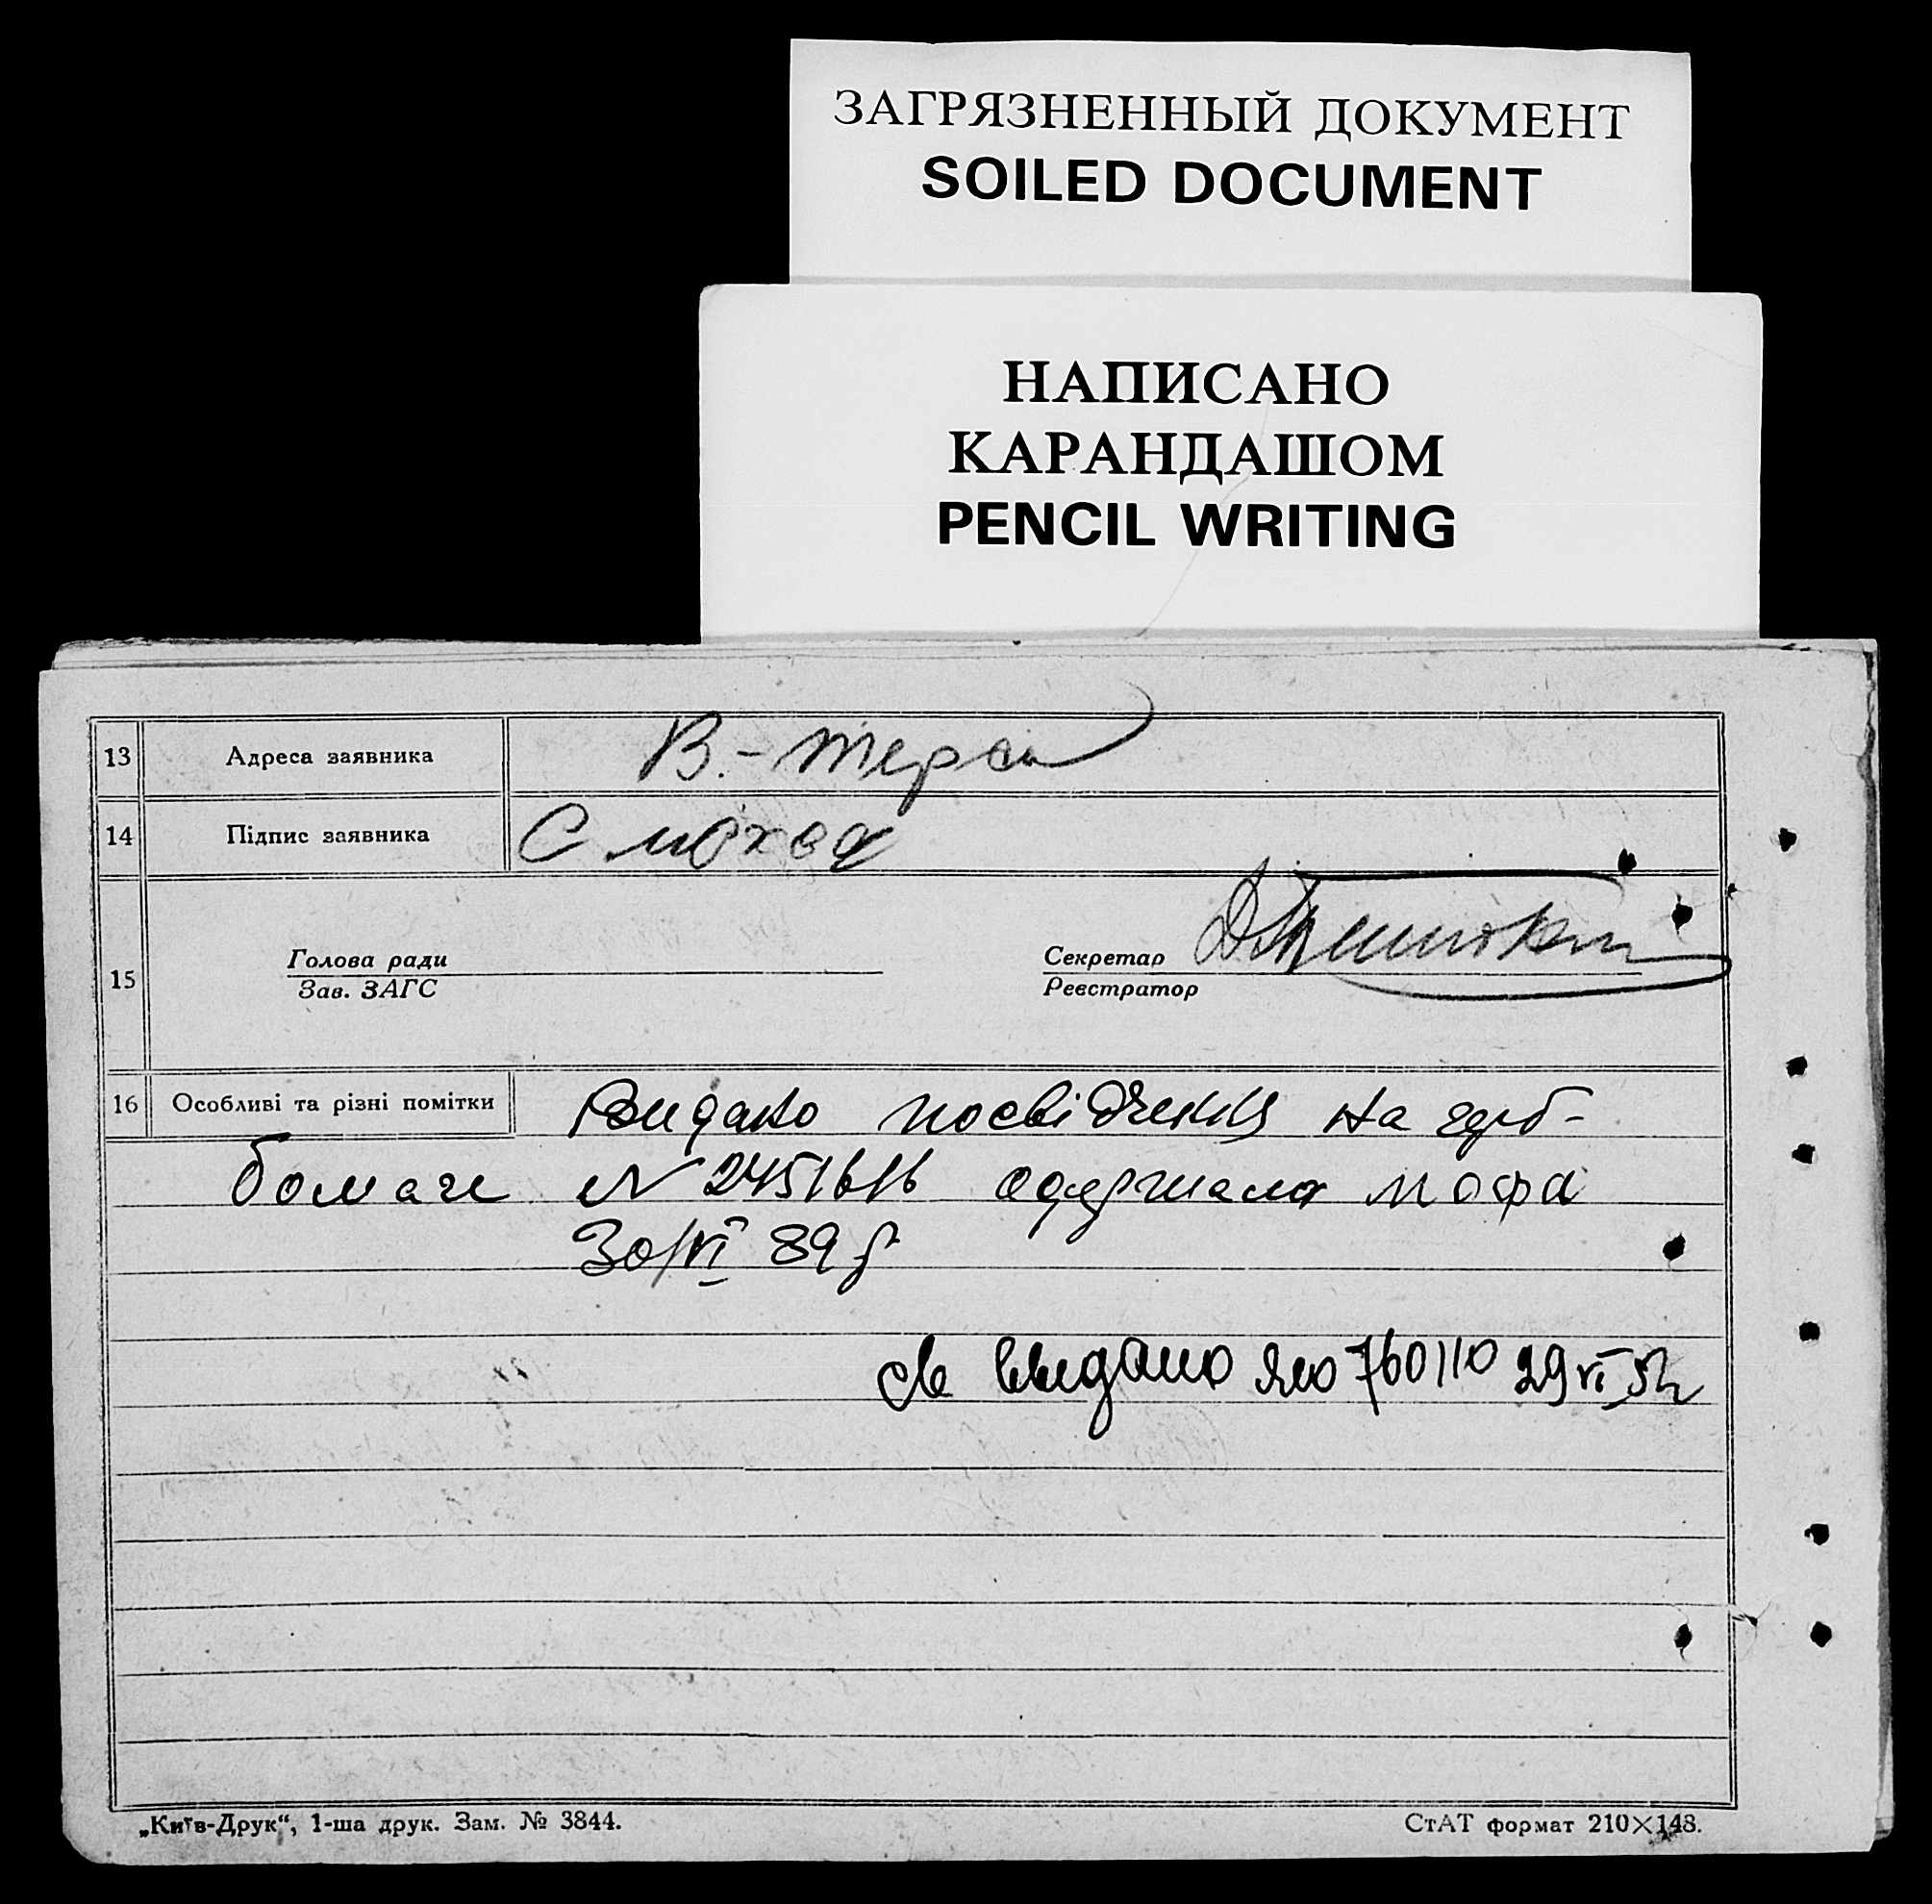 ЗАГРЯЗНЕННЫЙ ДОКУМЕНТ
SOILED DOCUMENT
НАПИСАНО
КАРАНДАШОМ
PENCIL WRITING
13 Адреса заявника В.-Терса
14 Підпис заявника
15 Голова ради Секретар
Зав. ЗАГС Реєстратор
16 Особливі та різні помітки Видано посвідчення на герб-
бомаге N 2451616 одержала
30/VI 39 р
св выдано ЯЮ 760110 29 VI
„Київ-Друк“, 1-ша друк. Зам. № 3844. СтАТ формат 210×148.